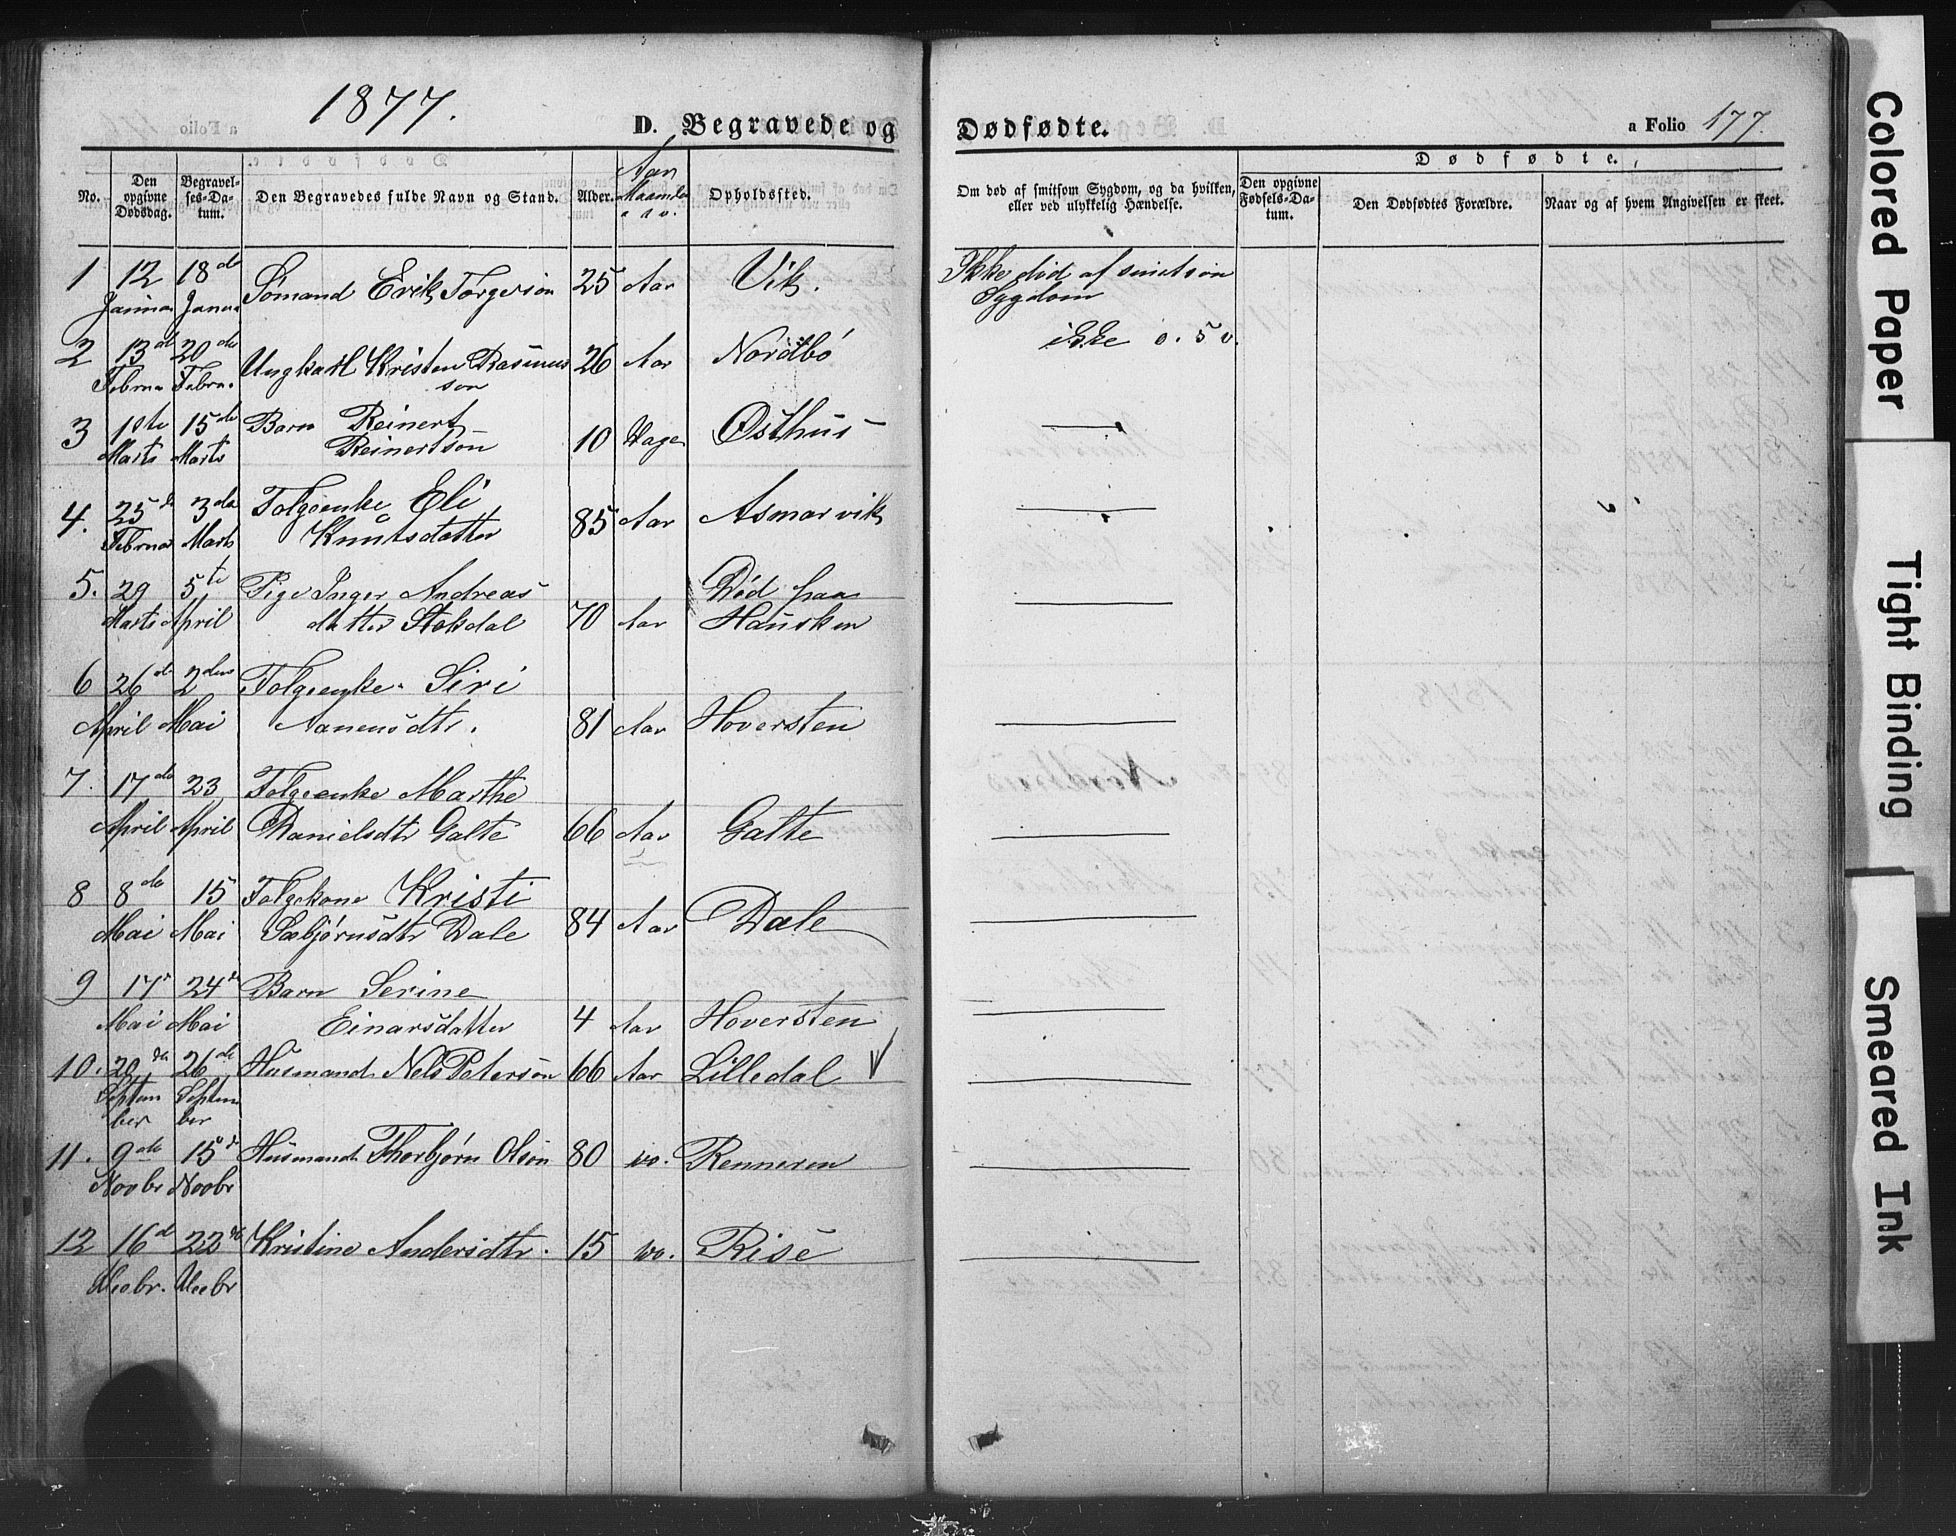 1877.
D. Begravede og Dødfødte.
a Folio 177.
No.
Den opgivne Dødsdag.
Begravelses-Datum.
Den Begravedes fulde Navn og Stand.
Alder.
Aar Maander
Opholdssted.
Om død af smitsom Sygdom, og da hvilken, eller ved ulykkelig Hændelse.
Dødfødte.
Den opgivne Fødsels-Datum.
Den Dødfødtes Forældre.
Naar og af hvem Angivelsen er skeet.
1 12 18de Sømand Erik Torgerson 25 Aar Vik. Ikke død af smitsom
Januar Janua Sygdom
2 13de 20de Ungkarl Kristen Rasmus 26 Aar Nordbö ikke o. s v.
Februa Febru. son
3 1ste 15de Barn Reinert
Marts Marts Reinertson 10 Dage Østhus
4. 25de 3die Folgeenke Eli
Februar Marts Knutsdatter 85 Aar Asmarvik
5. 29 5te Pige Inger Andreas Död paa
Marts April datter Stokdal 70 Aar Hausken
6 26de 2den Folgeenke Siri
April Mai Aanensdtr. 81 Aar Hoversten
7. 17de 23 Folgeenke Marthe
April April Danielsdtr Galte 66 Aar Galte
8 8de 15 Folgekone Kristi
Mai Mai Sæbjørnsdtr Dale 84 Aar Dale
9 17de 24de Barn Serine
Mai Mai Einarsdatter 4 Aar Hoversten
10. 20de 26de Husmand Nels Peterson 66 Aar Lilledal
Septem Septem
ber ber
11. 9de 15de Husmand Thorbjørn Olson 80 do. Renneren
Novbr Novbr
12 16de 22de Kristine Andersdtr. 15 do. Rise
Decbr. Decbr
Colored Paper
Tight Binding
Smeared Ink